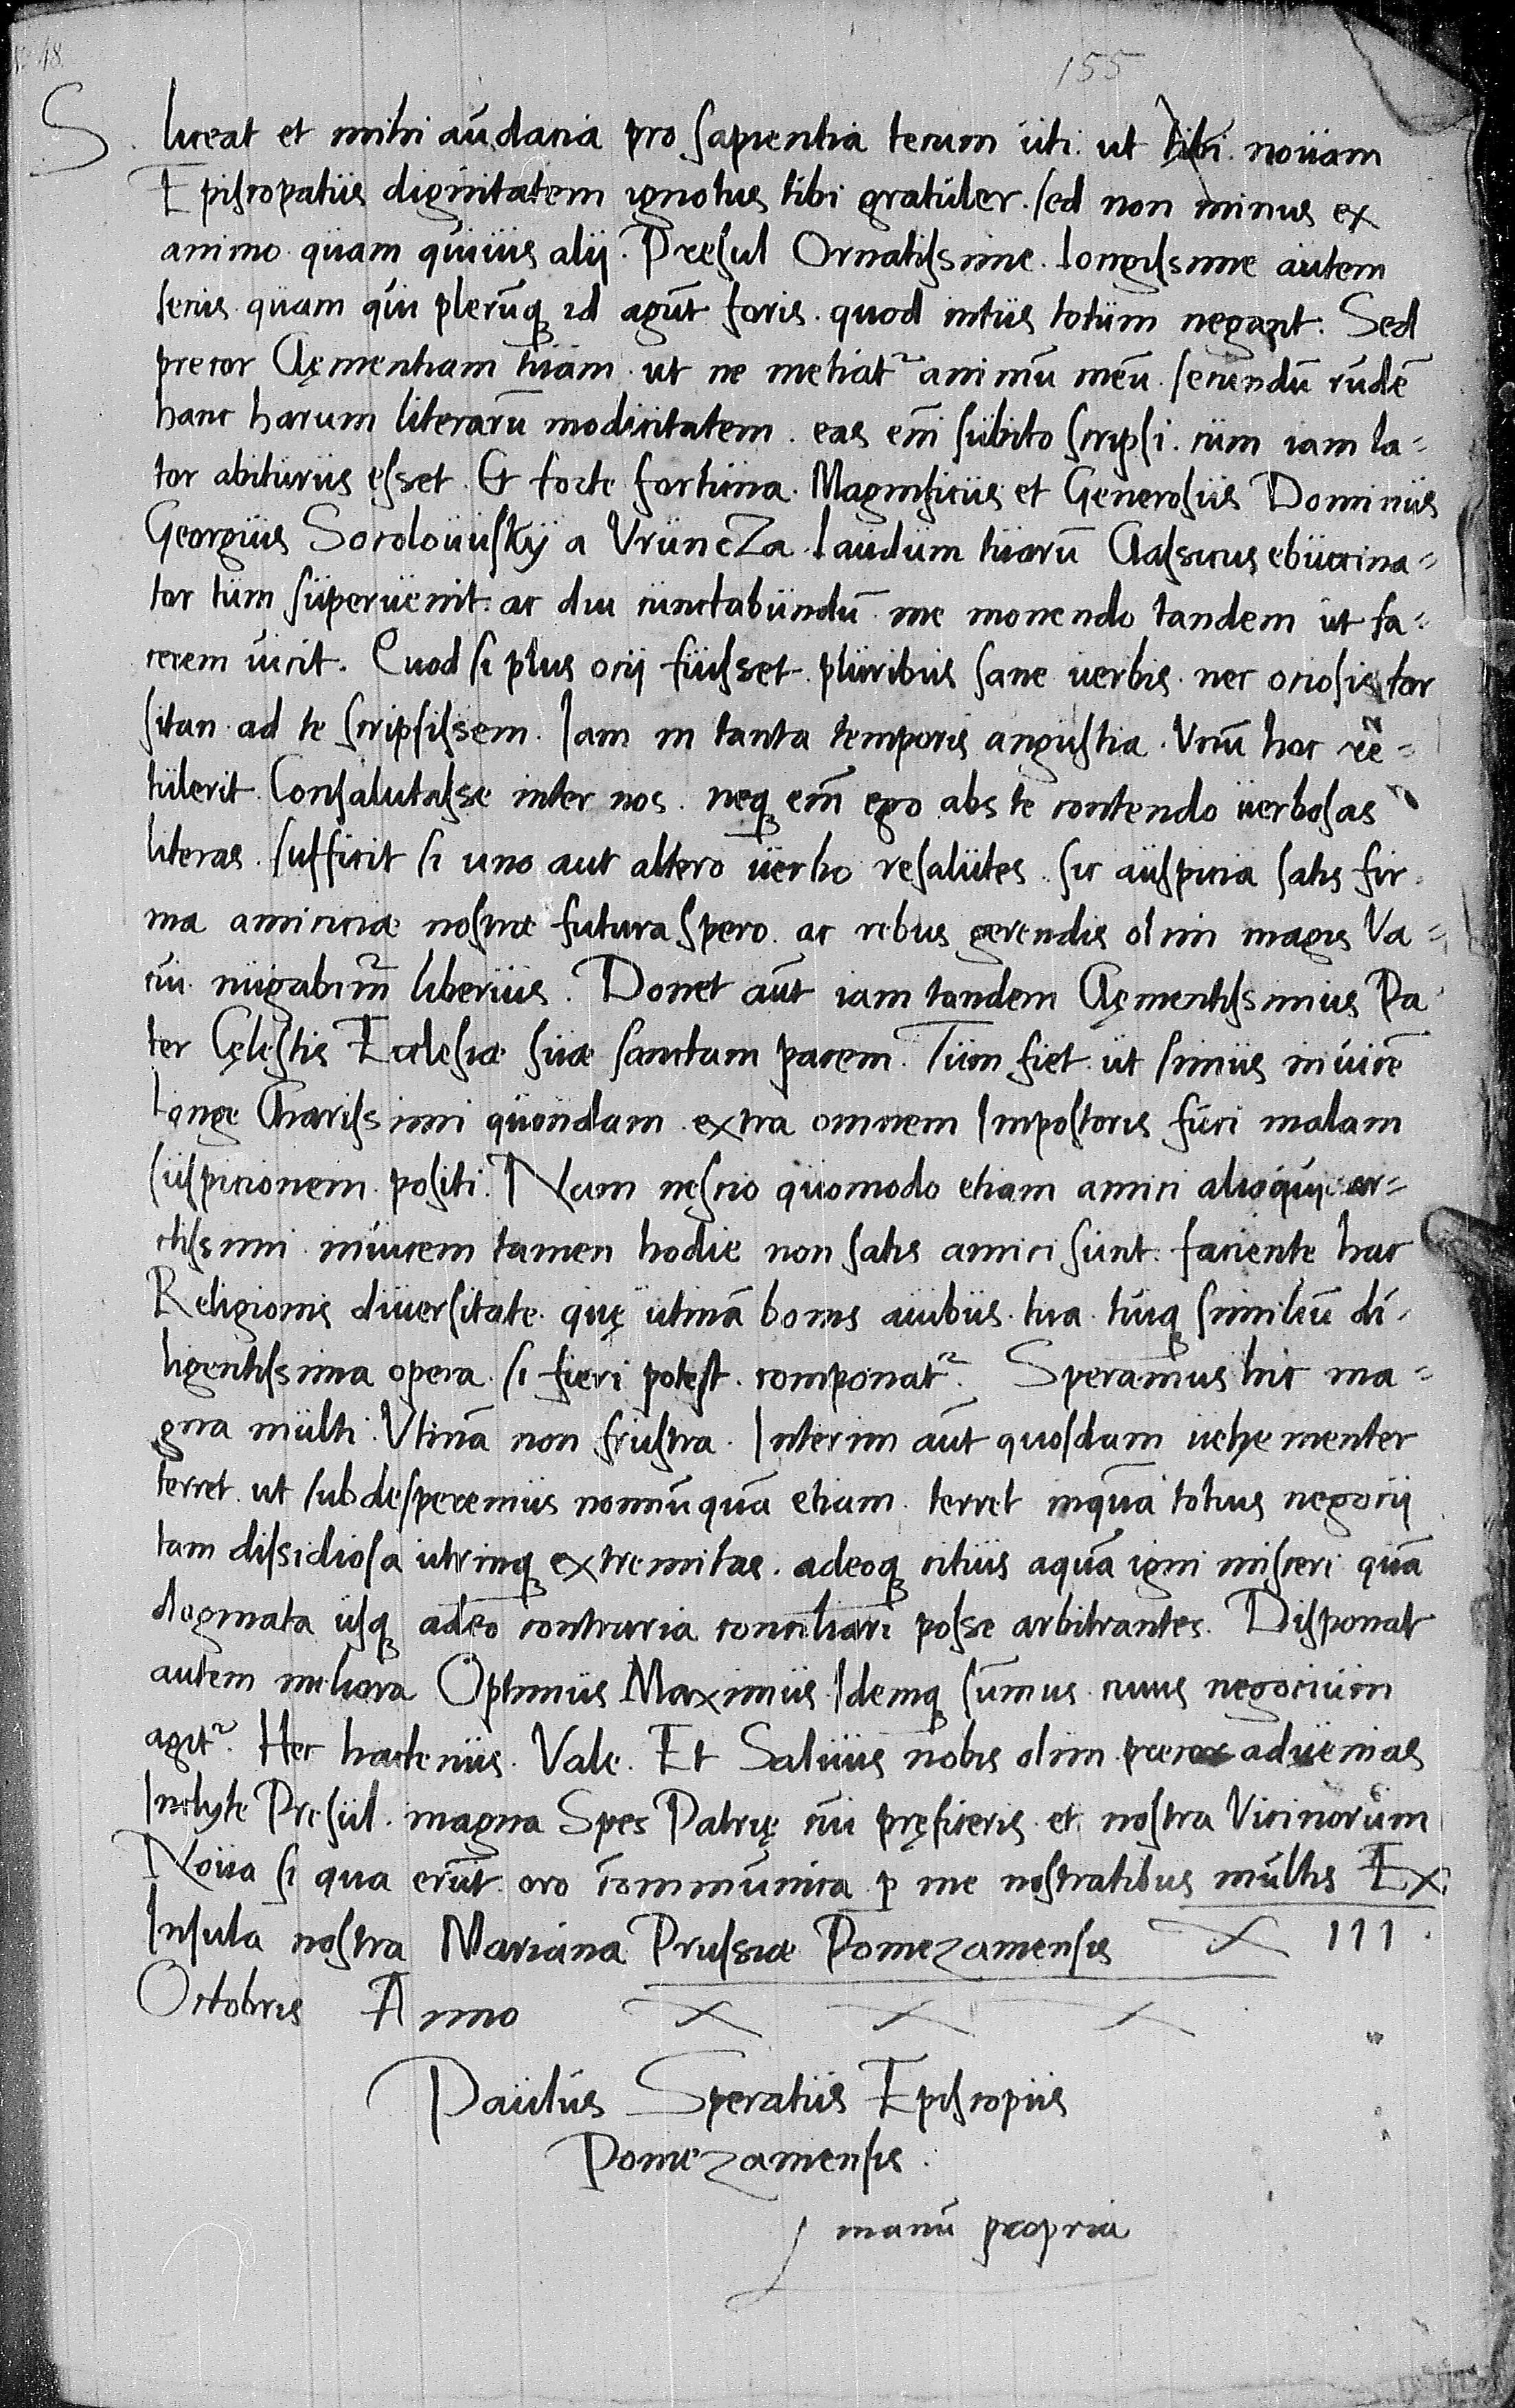 N° 48.
155
S. liceat et mihi audacia pro sapientia tecum uti. ut tibi novam
Episcopatus dignitatem ignotus tibi gratuler. sed non minus ex
animo quam quiuis alij. Presul Ornatissime. longissime autem
secus quam qui plerūq̨ id agūt foris. quod intus totum negant. Sed
precor Clęmentiam tuam. ut ne metiat² animū meū secundū rudē
hanc harum literarū modicitatem. eas em̄ subito scripsi. cum iam ta=
tor abiturus esset. Et forte fortuna. Magnificus et Generosus Dominus
Georgius Socolouusky a VruncZa laudum tuarū Classicus ebuccina=
tor tum superuenit. ac diu cunctabundū me monendo tandem ut fa=
cerem uicit. Quod si plus ocij fuisset. pluribus sane uerbis nec ociosis for
sitan ad te scripsissem. Iam in tanta temporis angustia. Vnū hoc re=
tulerit Consalutasse inter nos. neq̨ em̄ ego abs te contendo uerbosas
literas. sufficit si uno aut altero uerbo resalutes. sic auspicia satis fir
ma amiciciæ nostræ futura spero. ac rebus gerendis olim magis Va=
cui nugabim² liberius. Donet aūt iam tandem Clęmentissimus Pa
ter Cęlestis Ecclesiæ suæ sanctam pacem. Tum fiet ut simus inuicē
longe Charissimi quondam extra omnem Impostoris fuci malam
suspicionem positi. Nam nescio quomodo etiam amici alioqui ar=
ctissimi inuicem tamen hodie non satis amici sunt. faciente hac
Religionis diuersitate. quę utinā bonis auibus. tua. tuiq̨ similiū di
ligentissima opera. si fieri potest. componat². Speramus hic ma=
gna multi. Vtinā non frustra. Interim aūt quosdam uehementer
terret. ut subdesperemus nonnūquā etiam. terret inquā totius negocij
tam dissidiosa utrinq̨ extremitas. adeoq̨ citius aquā igni misceri quā
dogmata usq̨ adeo contraria conciliari posse arbitrantes. Disponat
autem meliora Optimus Maximus Idemq̨ sumus cuius negocium
agit². Hec hactenus. Vale. Et Saluus nobis olim precor aduenias
Inclyte Presul. magna Spes Patrię cui pręficeris et nostra Vicinorum
Noua si qua erūt oro communica p me nostratibus multis Ex
Insula nostra Mariana Prussiæ Pomezaniensis X III.
Octobris Anno X X X
Paulus Speratus Episcopus
Pomezaniensis.
manu propria